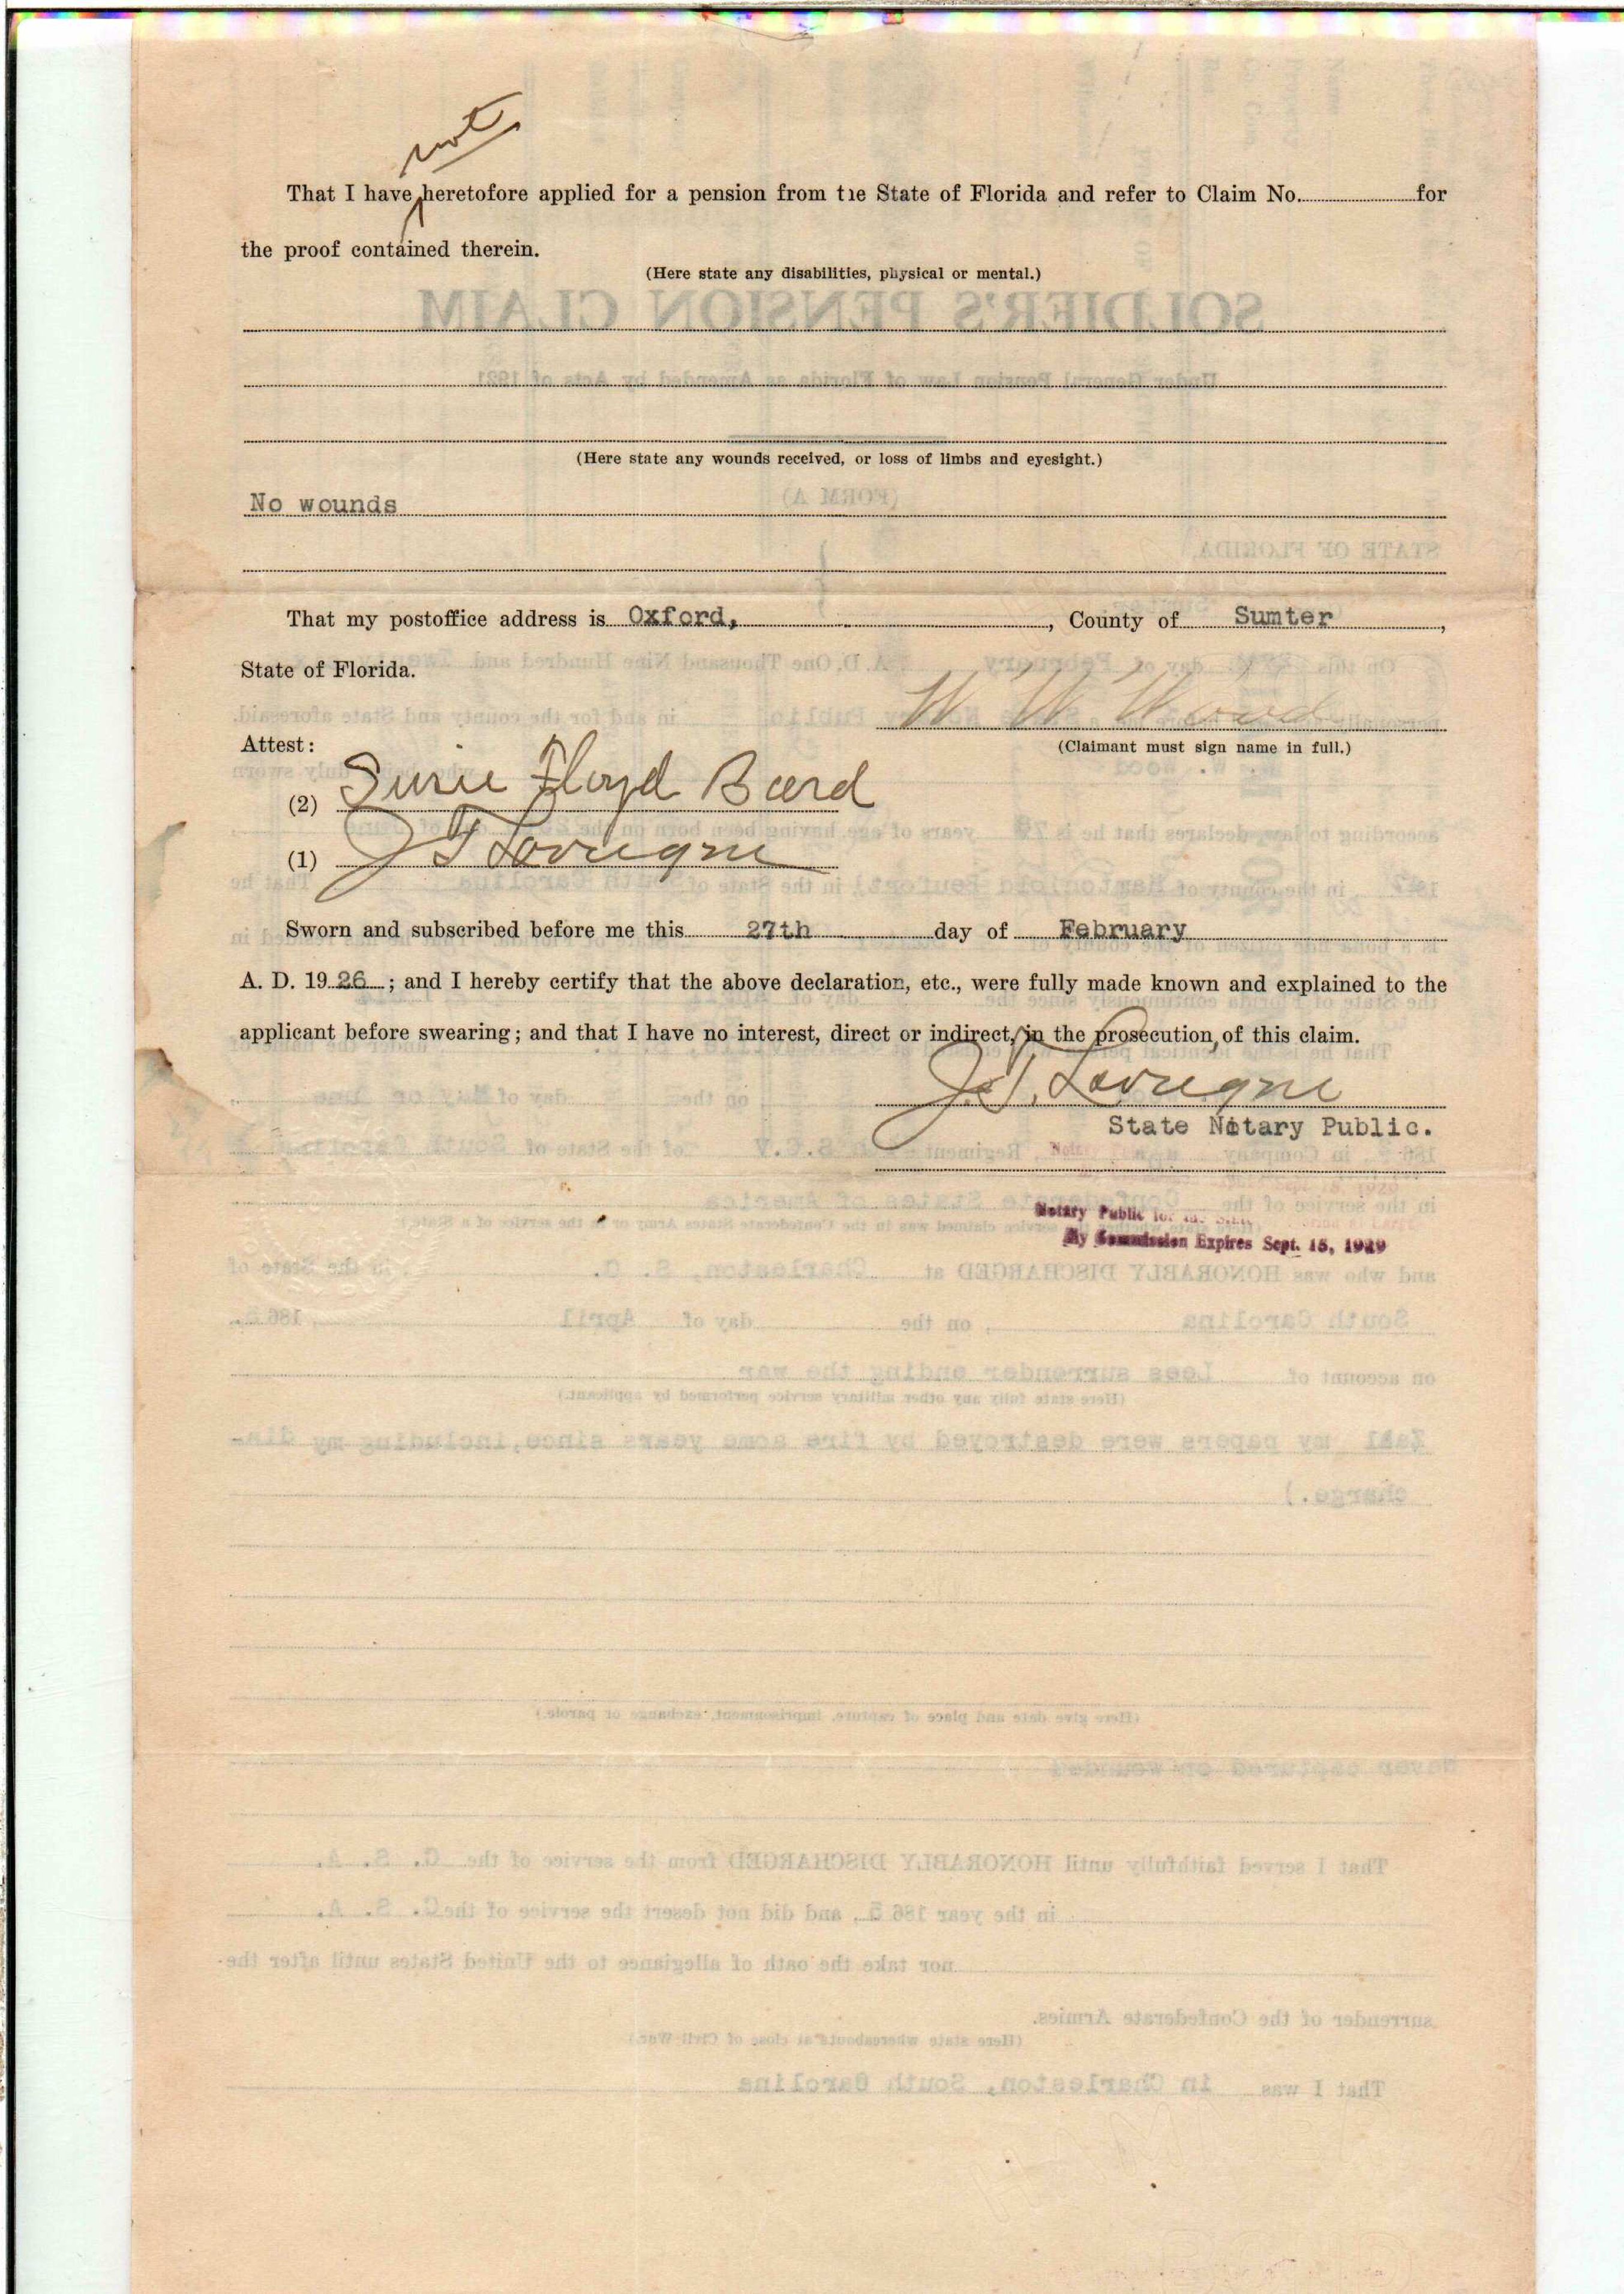 not
That I have heretofore applied for a pension from the State of Florida and refer to Claim No. for
the proof contained therein.
(Here state any disabilities, physical or mental.)
(Here state any wounds received, or loss of limbs and eyesight.)
No wounds
That my postoffice address is Oxford, , County of Sumter ,
State of Florida.
W W Wood
Attest:
(Claimant must sign name in full.)
(2) Susie Floyd Bard
(1) J T
Sworn and subscribed before me this 27th day of February
A. D. 19 26 ; and I hereby certify that the above declaration, etc., were fully made known and explained to the
applicant before swearing; and that I have no interest, direct or indirect, in the prosecution, of this claim.
J. T.
State Notary Public.
Notary Public for the
My Commission Expires Sept. 15, 1929